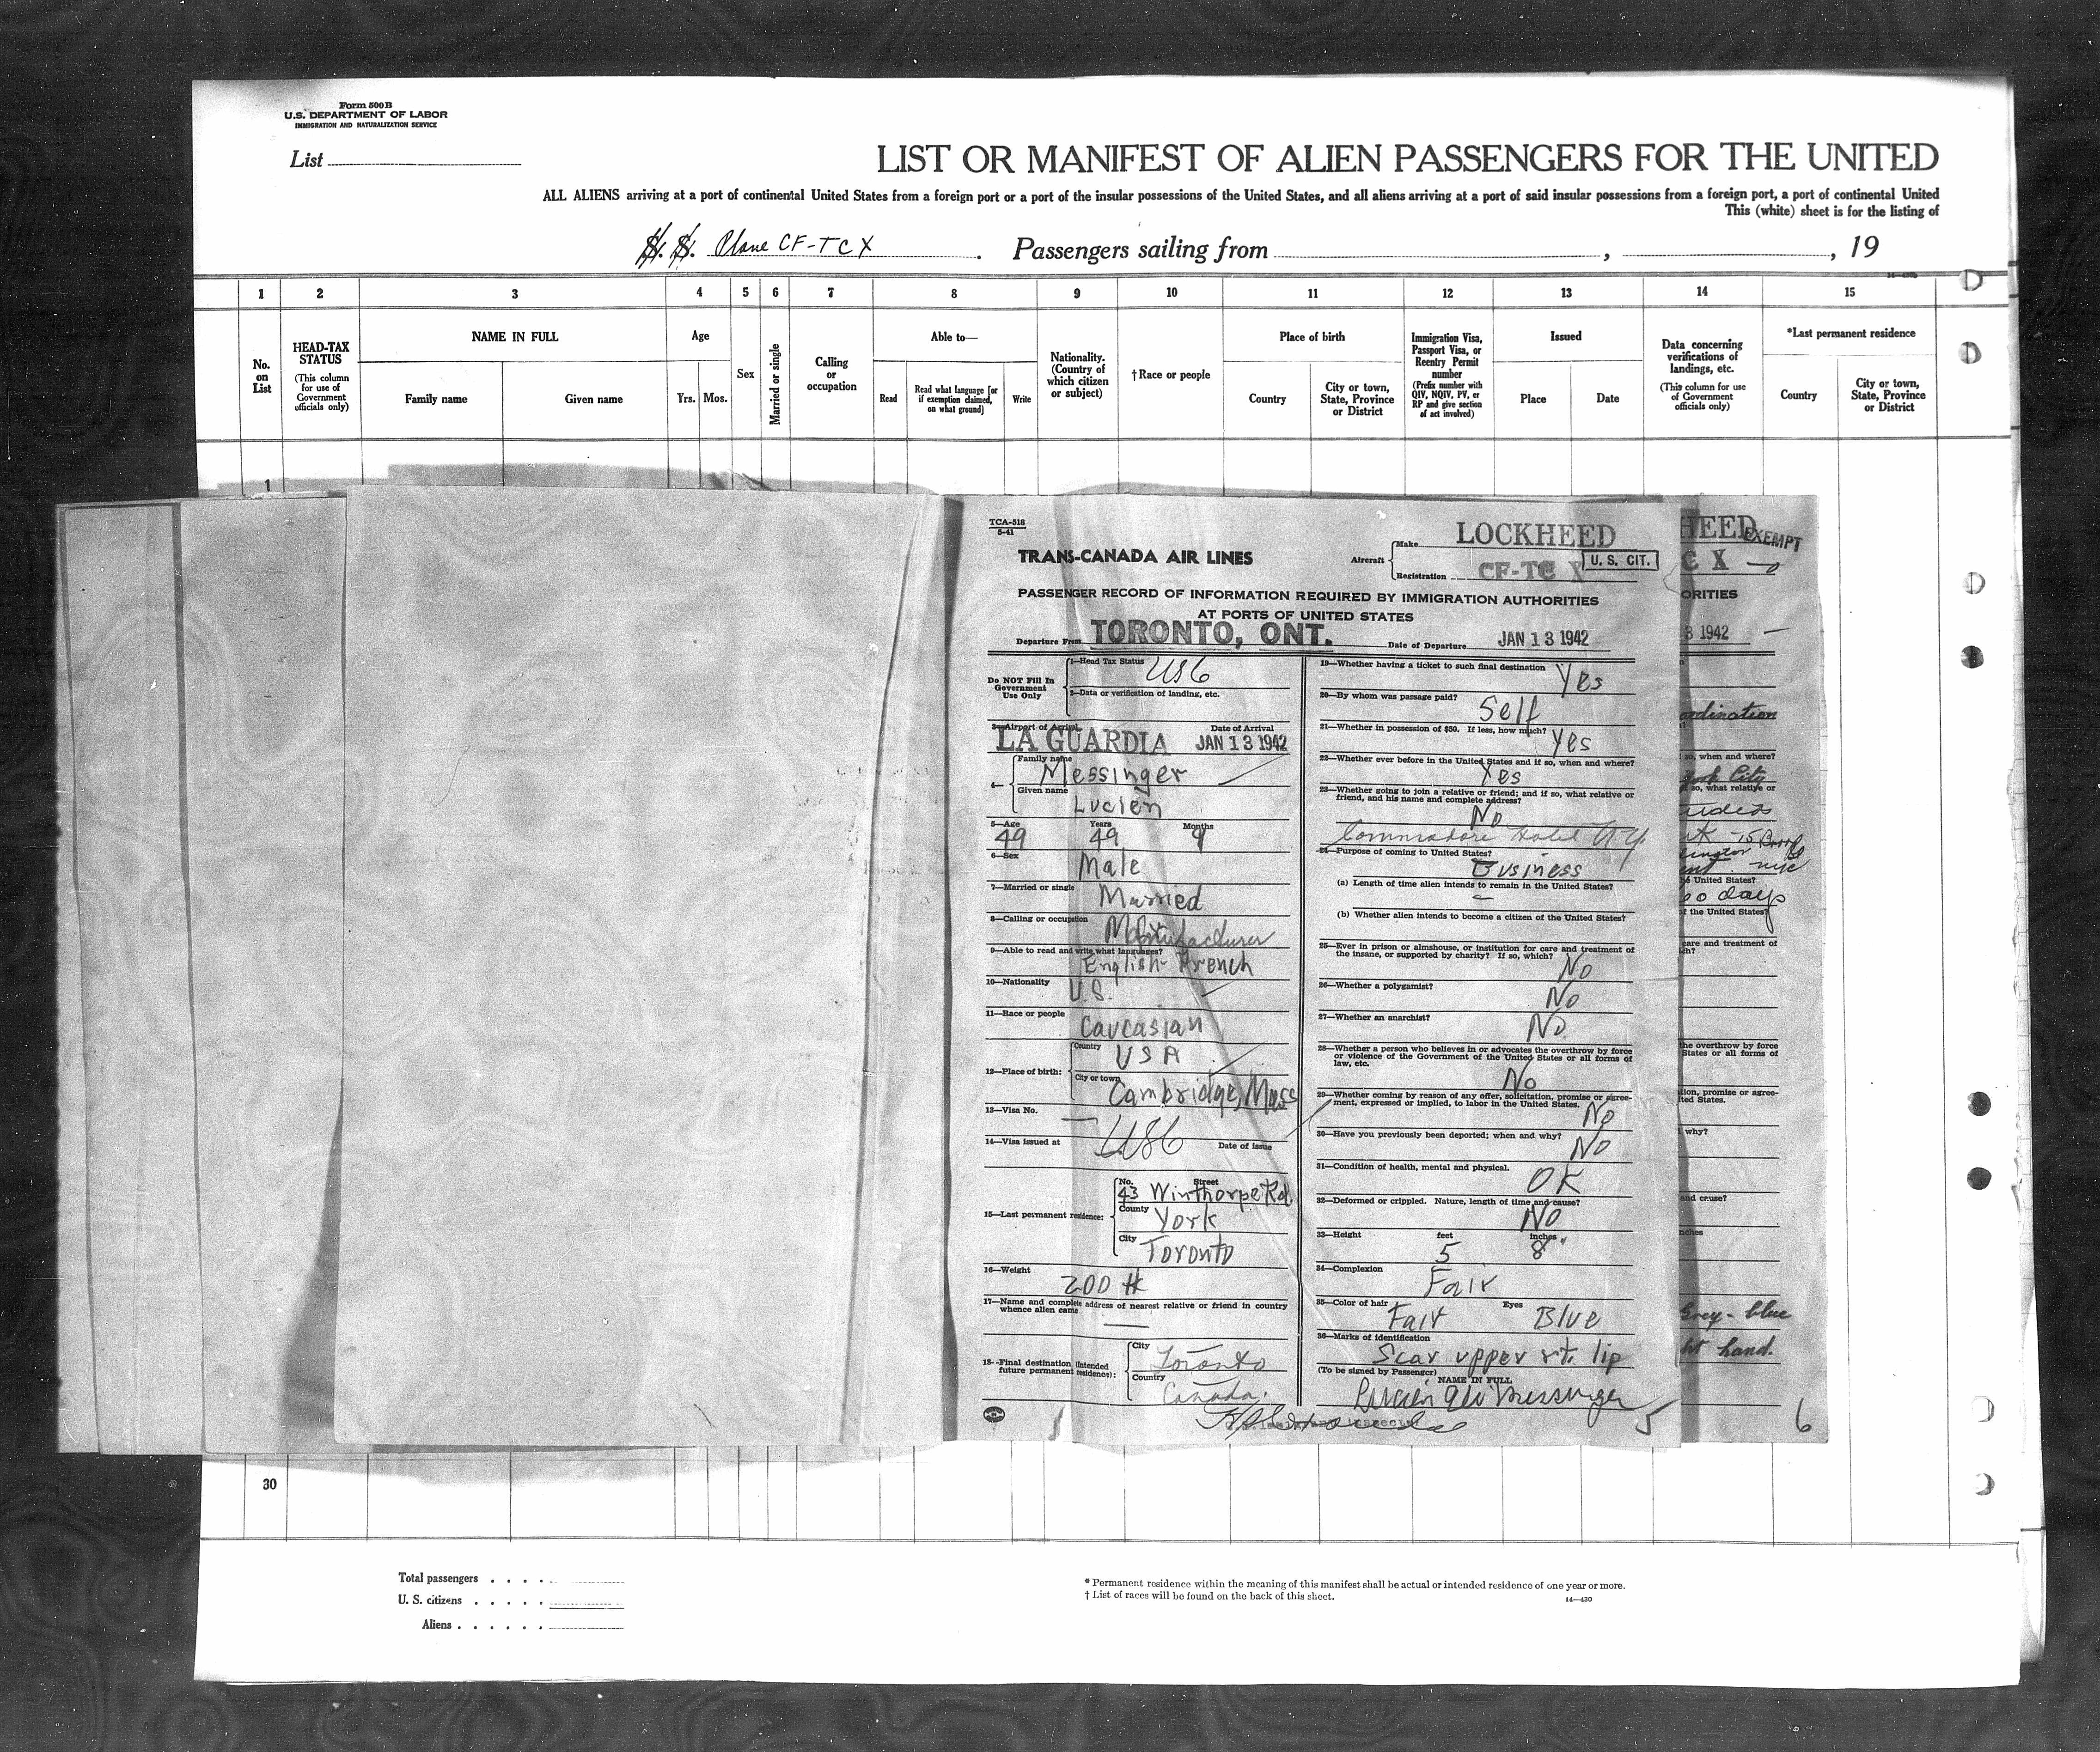 Form 500B
U.S. DEPARTMENT OF LABOR
IMMIGRATION AND NATURALIZATION SERVICE
List
LIST OR MANIFEST OF ALIEN PASSENGERS FOR THE UNITED
ALL ALIENS arriving at a port of continental United States from a foreign port or a port of the insular possessions of the United States, and all aliens arriving at a port of said insular possessions from a foreign port, a port of continental United
This (white) sheet is for the listing of
S. S. Plane CF-TCX. Passengers sailing from , , 19
1 2 3 4 5 6 7 8 9 10 11 12 13 14 15
No. on List
HEAD-TAX STATUS
(This column for use of Government officials only)
NAME IN FULL
Family name
Given name
Age
Yrs. Mos.
Sex
Married or single
Calling or occupation
Able to—
Read
Read what language [or if exemption claimed, on what ground]
Write
Nationality. (Country of which citizen or subject)
† Race or people
Place of birth
Country
City or town, State, Province or District
Immigration Visa, Passport Visa, or Reentry Permit number
(Prefix number with QIV, NQIV, PV, or RP and give section of act involved)
Issued
Place
Date
Data concerning verifications of landings, etc.
(This column for use of Government officials only)
*Last permanent residence
Country
City or town, State, Province or District
1
TCA-518
5-41
TRANS-CANADA AIR LINES
Aircraft
Make LOCKHEED
Registration CF-TC X
U. S. CIT.
PASSENGER RECORD OF INFORMATION REQUIRED BY IMMIGRATION AUTHORITIES
AT PORTS OF UNITED STATES
Departure From TORONTO, ONT. Date of Departure JAN 13 1942
Do NOT Fill In Government Use Only
1—Head Tax Status USC
2—Data or verification of landing, etc.
3—Airport of Arrival Date of Arrival
LA GUARDIA JAN 13 1942
4— Family name
Messinger
Given name
Lucien
5—Age Years Months
49 49 9
6—Sex
Male
7—Married or single
Married
8—Calling or occupation
Manufacturer
9—Able to read and write what languages?
English French
10—Nationality
U.S.
11—Race or people
Caucasian
12—Place of birth:
Country
USA
City or town
Cambridge, Mass
13—Visa No.
14—Visa issued at USC Date of issue
15—Last permanent residence:
No. Street
43 Winthorpe Rd
County
York
City
Toronto
16—Weight
200 #
17—Name and complete address of nearest relative or friend in country whence alien came
18—Final destination (Intended future permanent residence):
City
Toronto
Country
Canada.
19—Whether having a ticket to such final destination
Yes
20—By whom was passage paid?
Self
21—Whether in possession of $50. If less, how much?
Yes
22—Whether ever before in the United States and if so, when and where?
Yes
23—Whether going to join a relative or friend; and if so, what relative or
friend, and his name and complete address?
No
Commodore Hotel N.Y.
24—Purpose of coming to United States?
Business
(a) Length of time alien intends to remain in the United States?
(b) Whether alien intends to become a citizen of the United States?
25—Ever in prison or almshouse, or institution for care and treatment of
the insane, or supported by charity? If so, which?
No
26—Whether a polygamist?
No
27—Whether an anarchist?
No
28—Whether a person who believes in or advocates the overthrow by force
or violence of the Government of the United States or all forms of
law, etc.
No
29—Whether coming by reason of any offer, solicitation, promise or agree-
ment, expressed or implied, to labor in the United States.
No
30—Have you previously been deported; when and why?
No
31—Condition of health, mental and physical.
OK
32—Deformed or crippled. Nature, length of time and cause?
No
33—Height feet inches
5 8"
34—Complexion
Fair
35—Color of hair Eyes
Fair Blue
36—Marks of identification
Scar upper rt. lip
(To be signed by Passenger)
NAME IN FULL
Messinger
5
HEED
EXEMPT
C X
ORITIES
3 1942
ordination
so, when and where?
York City
so, what relative or
United States?
days
f the United States?
care and treatment of
he overthrow by force
States or all forms of
tion, promise or agree-
ted States.
why?
nd cause?
nches
Grey - blue
ht hand.
6
30
Total passengers
U. S. citizens
Aliens
* Permanent residence within the meaning of this manifest shall be actual or intended residence of one year or more.
† List of races will be found on the back of this sheet.
14—430